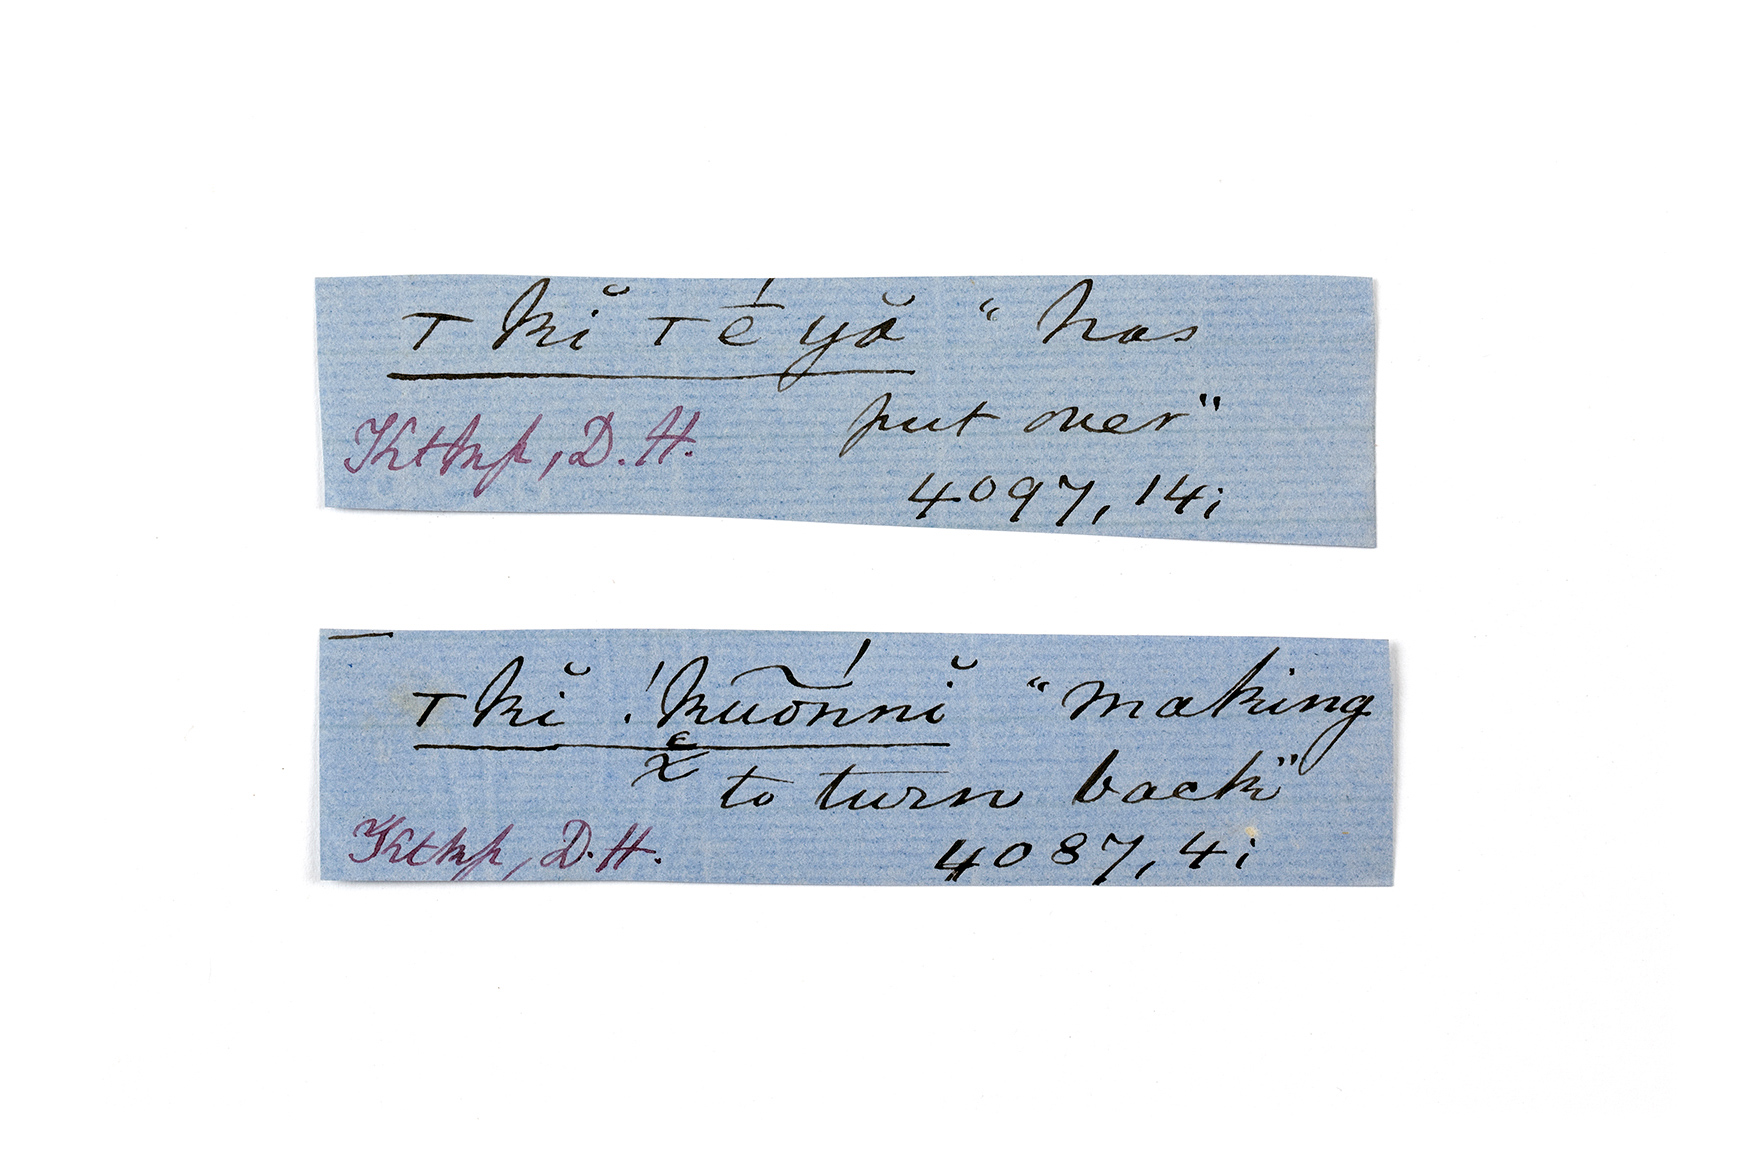 Tkĭ Tḗyă "has
put over"
Ktkkp, D.H.
4097, 14i
Tkĭ !kuṍnnĭ "making
to turn back"
Ktkkp, D.H.
4087, 4i